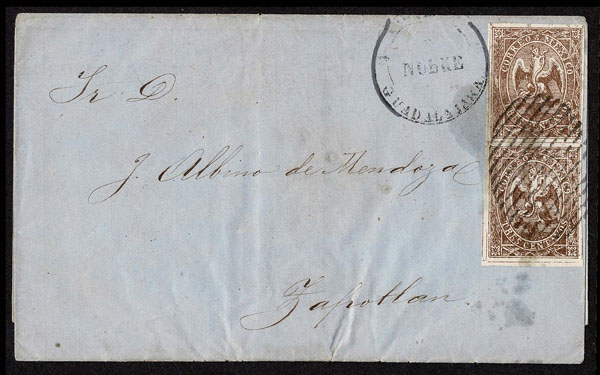 NOBRE
GUADALAJARA
CORREOS MEXICO
TRES CENTAVOS
Sr. D.
J. Albino de Mendoza
Zapotlan.